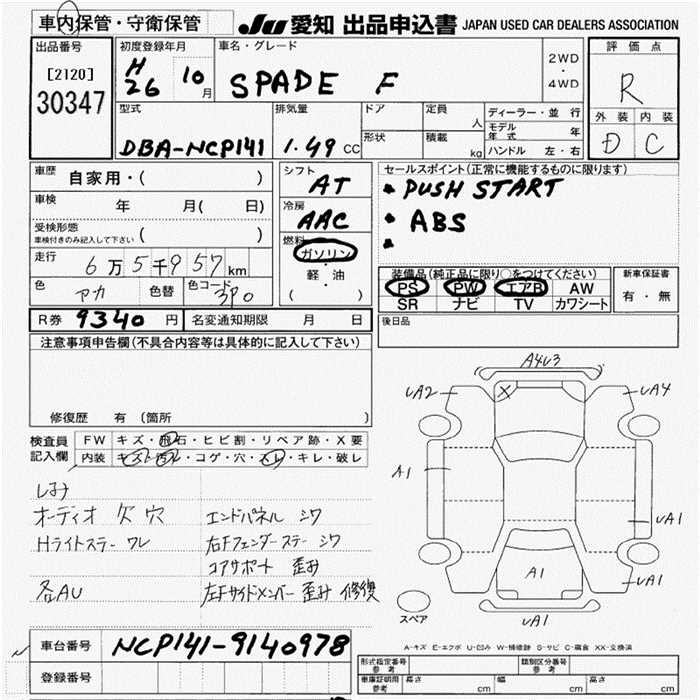 車内保管・守衛保管 JU 愛知 出品申込書 JAPAN USED CAR DEALERS ASSOCIATION
出品番号
[2120]
30347
初度登録年月
H26 10月
車名・グレード
SPADE F
2WD
・
4WD
評価点
R
外装 内装
D C
型式
DBA-NCP141
排気量
1.49 CC
ドア
形状
定員 人
積載 kg
ディーラー・並行
モデル年式 年
ハンドル 左・右
車歴 自家用・( )
車検 年 月( 日)
受検形態
車検付きのみ記入して下さい ( )
走行 6万5千957km
色 アカ 色替 色コード 3P0
シフト
AT
冷房
AAC
燃料
ガソリン
・
軽・油
( )
セールスポイント(正常に機能するものに限ります)
• PUSH START
• ABS
•
装備品(純正品に限り○をつけてください)
PS PW エアB AW
SR ナビ TV カワシート
新車保証書
有・無
R券 9340 円 名変通知期限 月 日
後日品
注意事項申告欄(不具合内容等は具体的に記入して下さい)
修復歴 有 (箇所 )
検査員記入欄
FW キズ・飛石・ヒビ割・リペア跡・X要
内装 キズ・汚レ・コゲ・穴・スレ・キレ・破レ
しみ
オーディオ欠穴 エンドパネル シワ
Hライトステー ワレ 右Fフェンダーステー シワ
コアサポート 歪み
各AU 左Fサイドメンバー 歪み 修復
A4U3
UA2
X
UA4
A1
UA1
A1
UA1
UA1
スペア
A-キズ E-エクボ U-凹み W-補修跡 S-サビ C-腐食 XX-交換済
車台番号 NCP141-9140978
登録番号
形式指定番号 参考 類別区分番号 参考
車庫証明用 参考 長さ cm 幅 cm 高さ cm